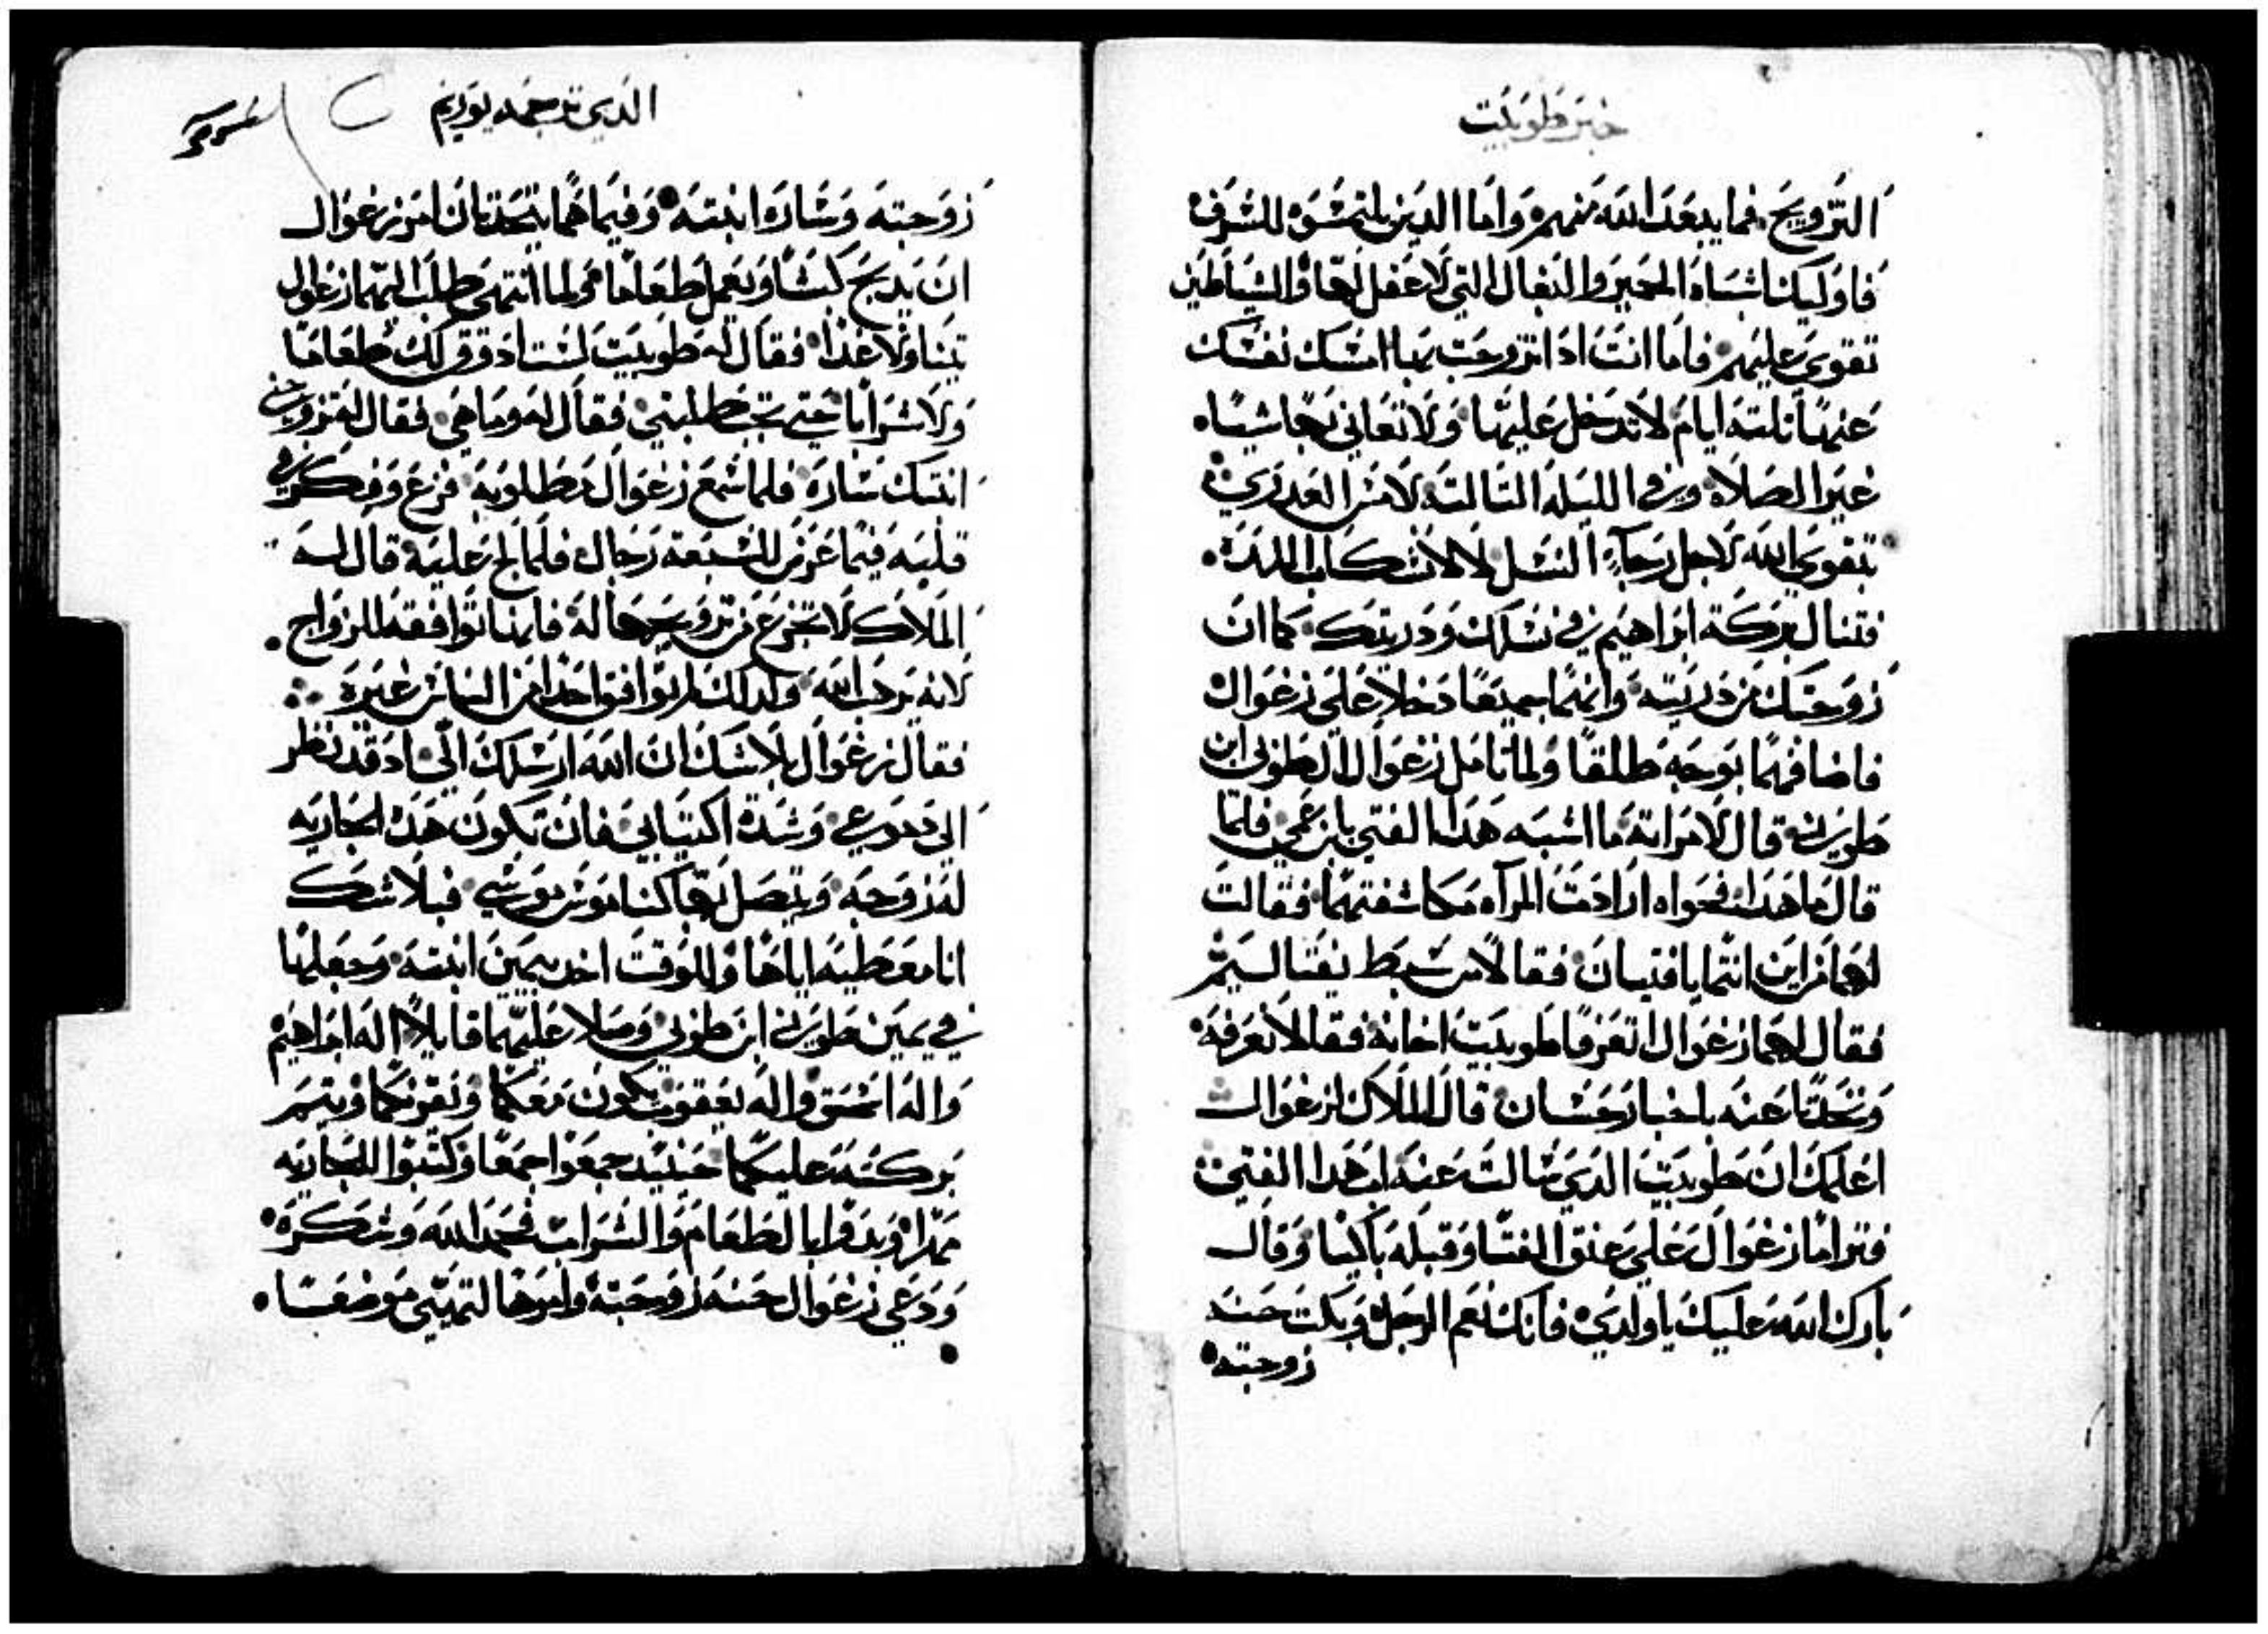 خبر طوبيت
التزويج. فما يبعد الله منهم واما الدين يلتمسوه للشرف
فاوليك اشباه الحمير والبغال التي لا عقل لها والشياطين
تقوي عليهم فاما انت ادا تزوجت بها امسك نفسك
عنها تلته ايام لا تدخل عليها ولا تعاني بها شيا.
غير الصلاه وفي الليله التالته
تتقوي الله لاجل رجآء النسل لا لانسكاب اللده.
فتنال بركة ابراهيم في نسلك ودريتك. كما ان
زوجتك من دريته وانهما جميعا دخلا علي زغوال
فاضافهما بوجه طلقا ولما تامل زغوال الي طوبي ابن
طوبيت قال لامراته ما اشبه هدا الفتي بابن عمي فلما
قال ما هدا فحواه ارادت المرآه مكاشفتهما فقالت
لهما من اين انتما يا فتيان فقالا من سبط نفتاليم
فقال لهما زغوال اتعرفا طوبيت اخانه فقالا نعرفه
وتحدتا عنه باخبار حسان قال الملاك لزغوال
اعلمك ان طوبيت الدي سالت عنه اب هدا الفتي
فتراما زغوال علي عنق الفتا وقبله باكيا وقال
بارك الله عليك يا ولدي فانك نعم الرجل وبكت حنه
زوجته
الدي ترجمه يورنيم
زوجته وساره ابنته وفيما هما يتحدتان امر زغوال
ان يدبح كبشا ويعمل طعاما ولما انتهي طلب اليهما زغوال
يتناولا غدا فقال له طوبيت لست ادوق لك طعاما
ولا شرابا حتي تجب طلبتي فقال له وما هي. فقال له تزوجني
ابنتك ساره فلما سمع زغوال مطلوبه فزع وفكر في
قلبه فيما عرض للسبعة رجال فلما لج عليه قال له
الملاك لا تجزع من تزويجها له فابنتا توافقه للزواج.
لانه يرهب الله ولدلك لم توافق احدا من الناس غيره
فقال زغوال بلا شك ان الله ارسلك الي اد قد نظر
الي دموعي وشدة اكتيابي فان تكون هده الجاريه
له زوجه ويتصل بها كناموس موسي فبلا شك
انا معطيه اياها وللوقت اخد بيمين ابنته وجعلها
في يمين طوبي ابن طوبي وصلا عليهما قايلا اله ابراهيم
واله اسحق واله يعقوب يكون معكما ويقرنكما ويتمم
بركته عليكما حينيد جمعوا جمعا وكتبوا للجاريه
مهرا وبدوا بالطعام والشراب فحمد الله وشكره.
ودعي زغوال حنه زوجته وامرها لتهيي موضعا.